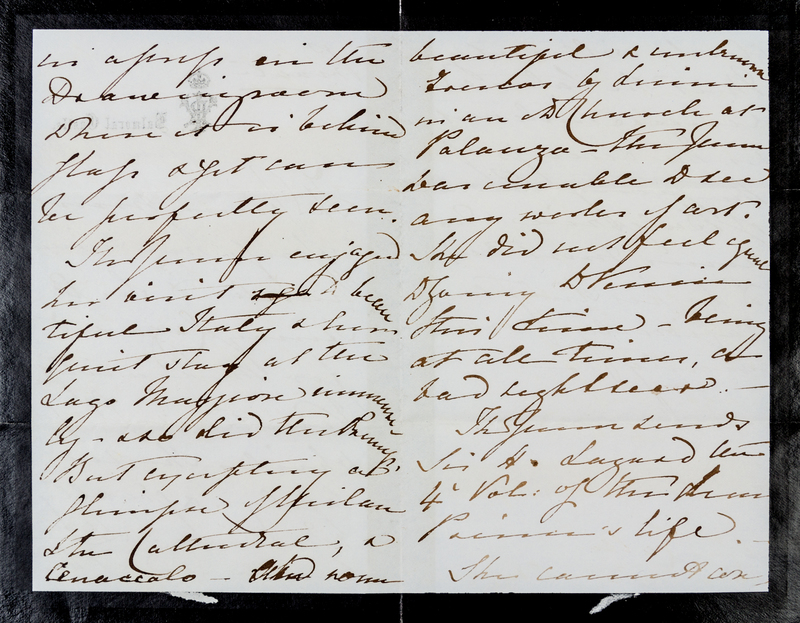 in a press in the
Drawing room
where it is behind
glass & yet can
be perfectly seen.
The Queen enjoyed
her visit to beau
tiful Italy & her
quiet stay at the
Lago Maggiore immense
ly – as did the Princess.
But excepting a
glimpse of Milan
& the Cathedral, &
Cenacolo – & some
beautiful &
Frescoes by Luini
in an old Church at
Palanza – the Queen
was unable to see
any works of art.
She did not feel equal
to going to Venice
this time – being
at all times, a
bad sightseer. –
The Queen sends
Sir H. Layard the
4th Vol: of the dear
Prince's life.
She cannot con